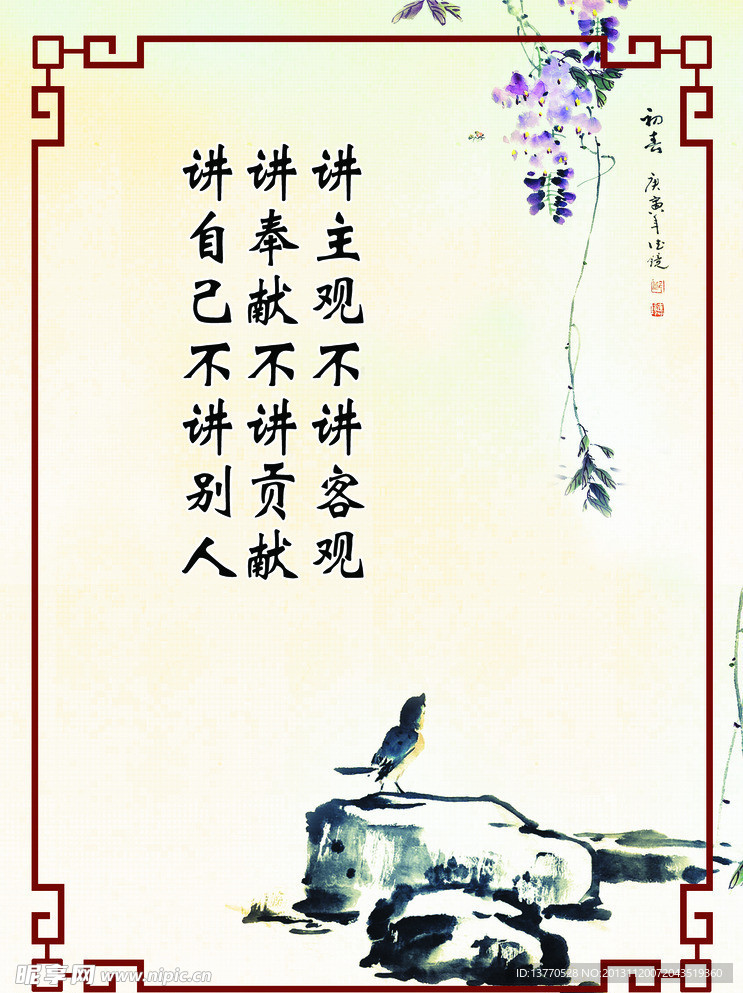 讲主观不讲客观
讲奉献不讲贡献
讲自己不讲别人
初春
庚寅年
昵享网 www.nipic.cn
ID:13770528 NO:20131120072043519360